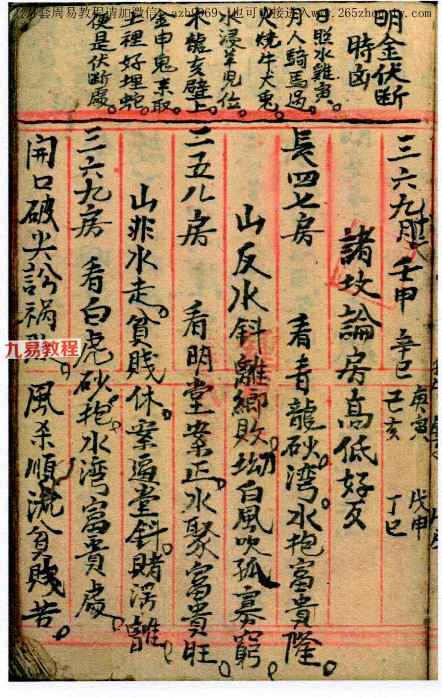 易教程请加微信
也可百度进入www.265zhouyi.com
明金伏断
時凶
日照水雞寅
月人騎馬過
火燒牛犬兔
水浸羊兒位
木龍亥壁上
金申鬼來取
土裡好埋蛇
便是伏断處
三六九月 壬申 辛巳 庚寅 己亥 戊申 丁巳
諸坟論房高低好歹
長四七房 看青龍砂湾水抱富貴隆
山反水斜離鄉敗坳白風吹孤寡窮
二五八房 看明堂案正水聚富貴旺
山非水走貧賤休案逼堂斜賭淫
三六九房 看白虎砂抱水湾富貴處
開口破尖訟禍 風杀順流貧賤苦
九易教程